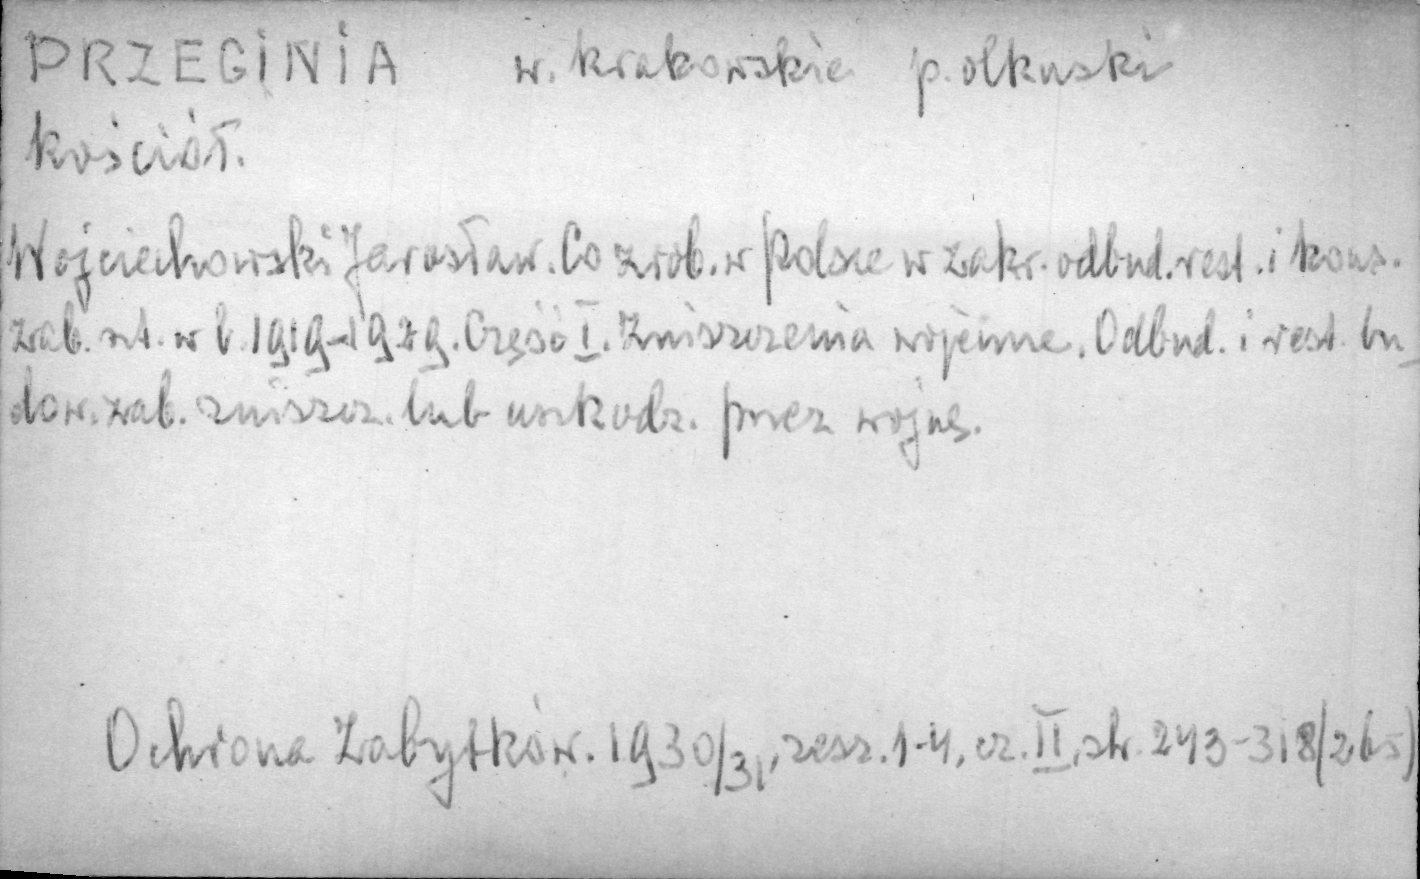 PRZEGINIA w. krakowskie p. olkuski
kościół.
Wojciechowski Jarosław. Co zrob. w Polsce w zakr. odbud. rest. i kons.
zab. szt. w l. 1919-1929. Część I. Zniszczenia wojenne. Odbud. i rest. bu_
dow. zab. zniszcz. lub uszkodz. przez wojnę.
Ochrona Zabytków. 1930/31, zesz. 1-4, cz. II, str. 243-318/265)